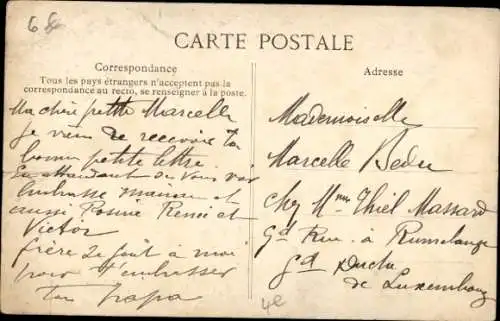 68
CARTE POSTALE
Correspondance
Tous les pays étrangers n'acceptent pas la
correspondance au recto, se renseigner à la poste.
Ma chère petite Marcelle
je viens de recevoir ta
bonne petite lettre
En attendant de vous voir
Embrasse maman et
aussi Rennée et
Victor
à moi
pour t'embrasser
ton papa
Adresse
Mademoiselle
Marcelle Bedu
chez Mme Thiel Massard
Gd Rue à Rumelange
Gd Duché
de Luxembourg
4e